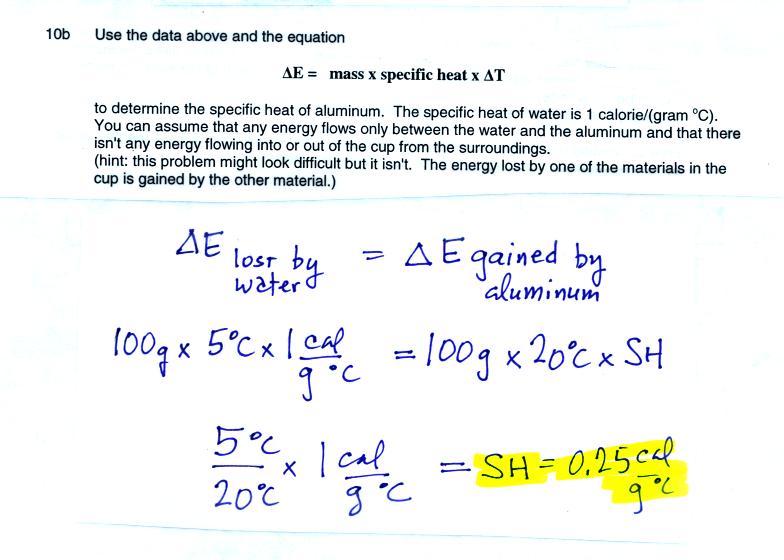 10b Use the data above and the equation
ΔE = mass x specific heat x ΔT
to determine the specific heat of aluminum. The specific heat of water is 1 calorie/(gram °C).
You can assume that any energy flows only between the water and the aluminum and that there
isn't any energy flowing into or out of the cup from the surroundings.
(hint: this problem might look difficult but it isn't. The energy lost by one of the materials in the
cup is gained by the other material.)
ΔE lost by water = ΔE gained by aluminum
100g x 5°C x 1 cal/g °C = 100g x 20°C x SH
5°C/20°C x 1 cal/g °C = SH = 0.25 cal/g °C